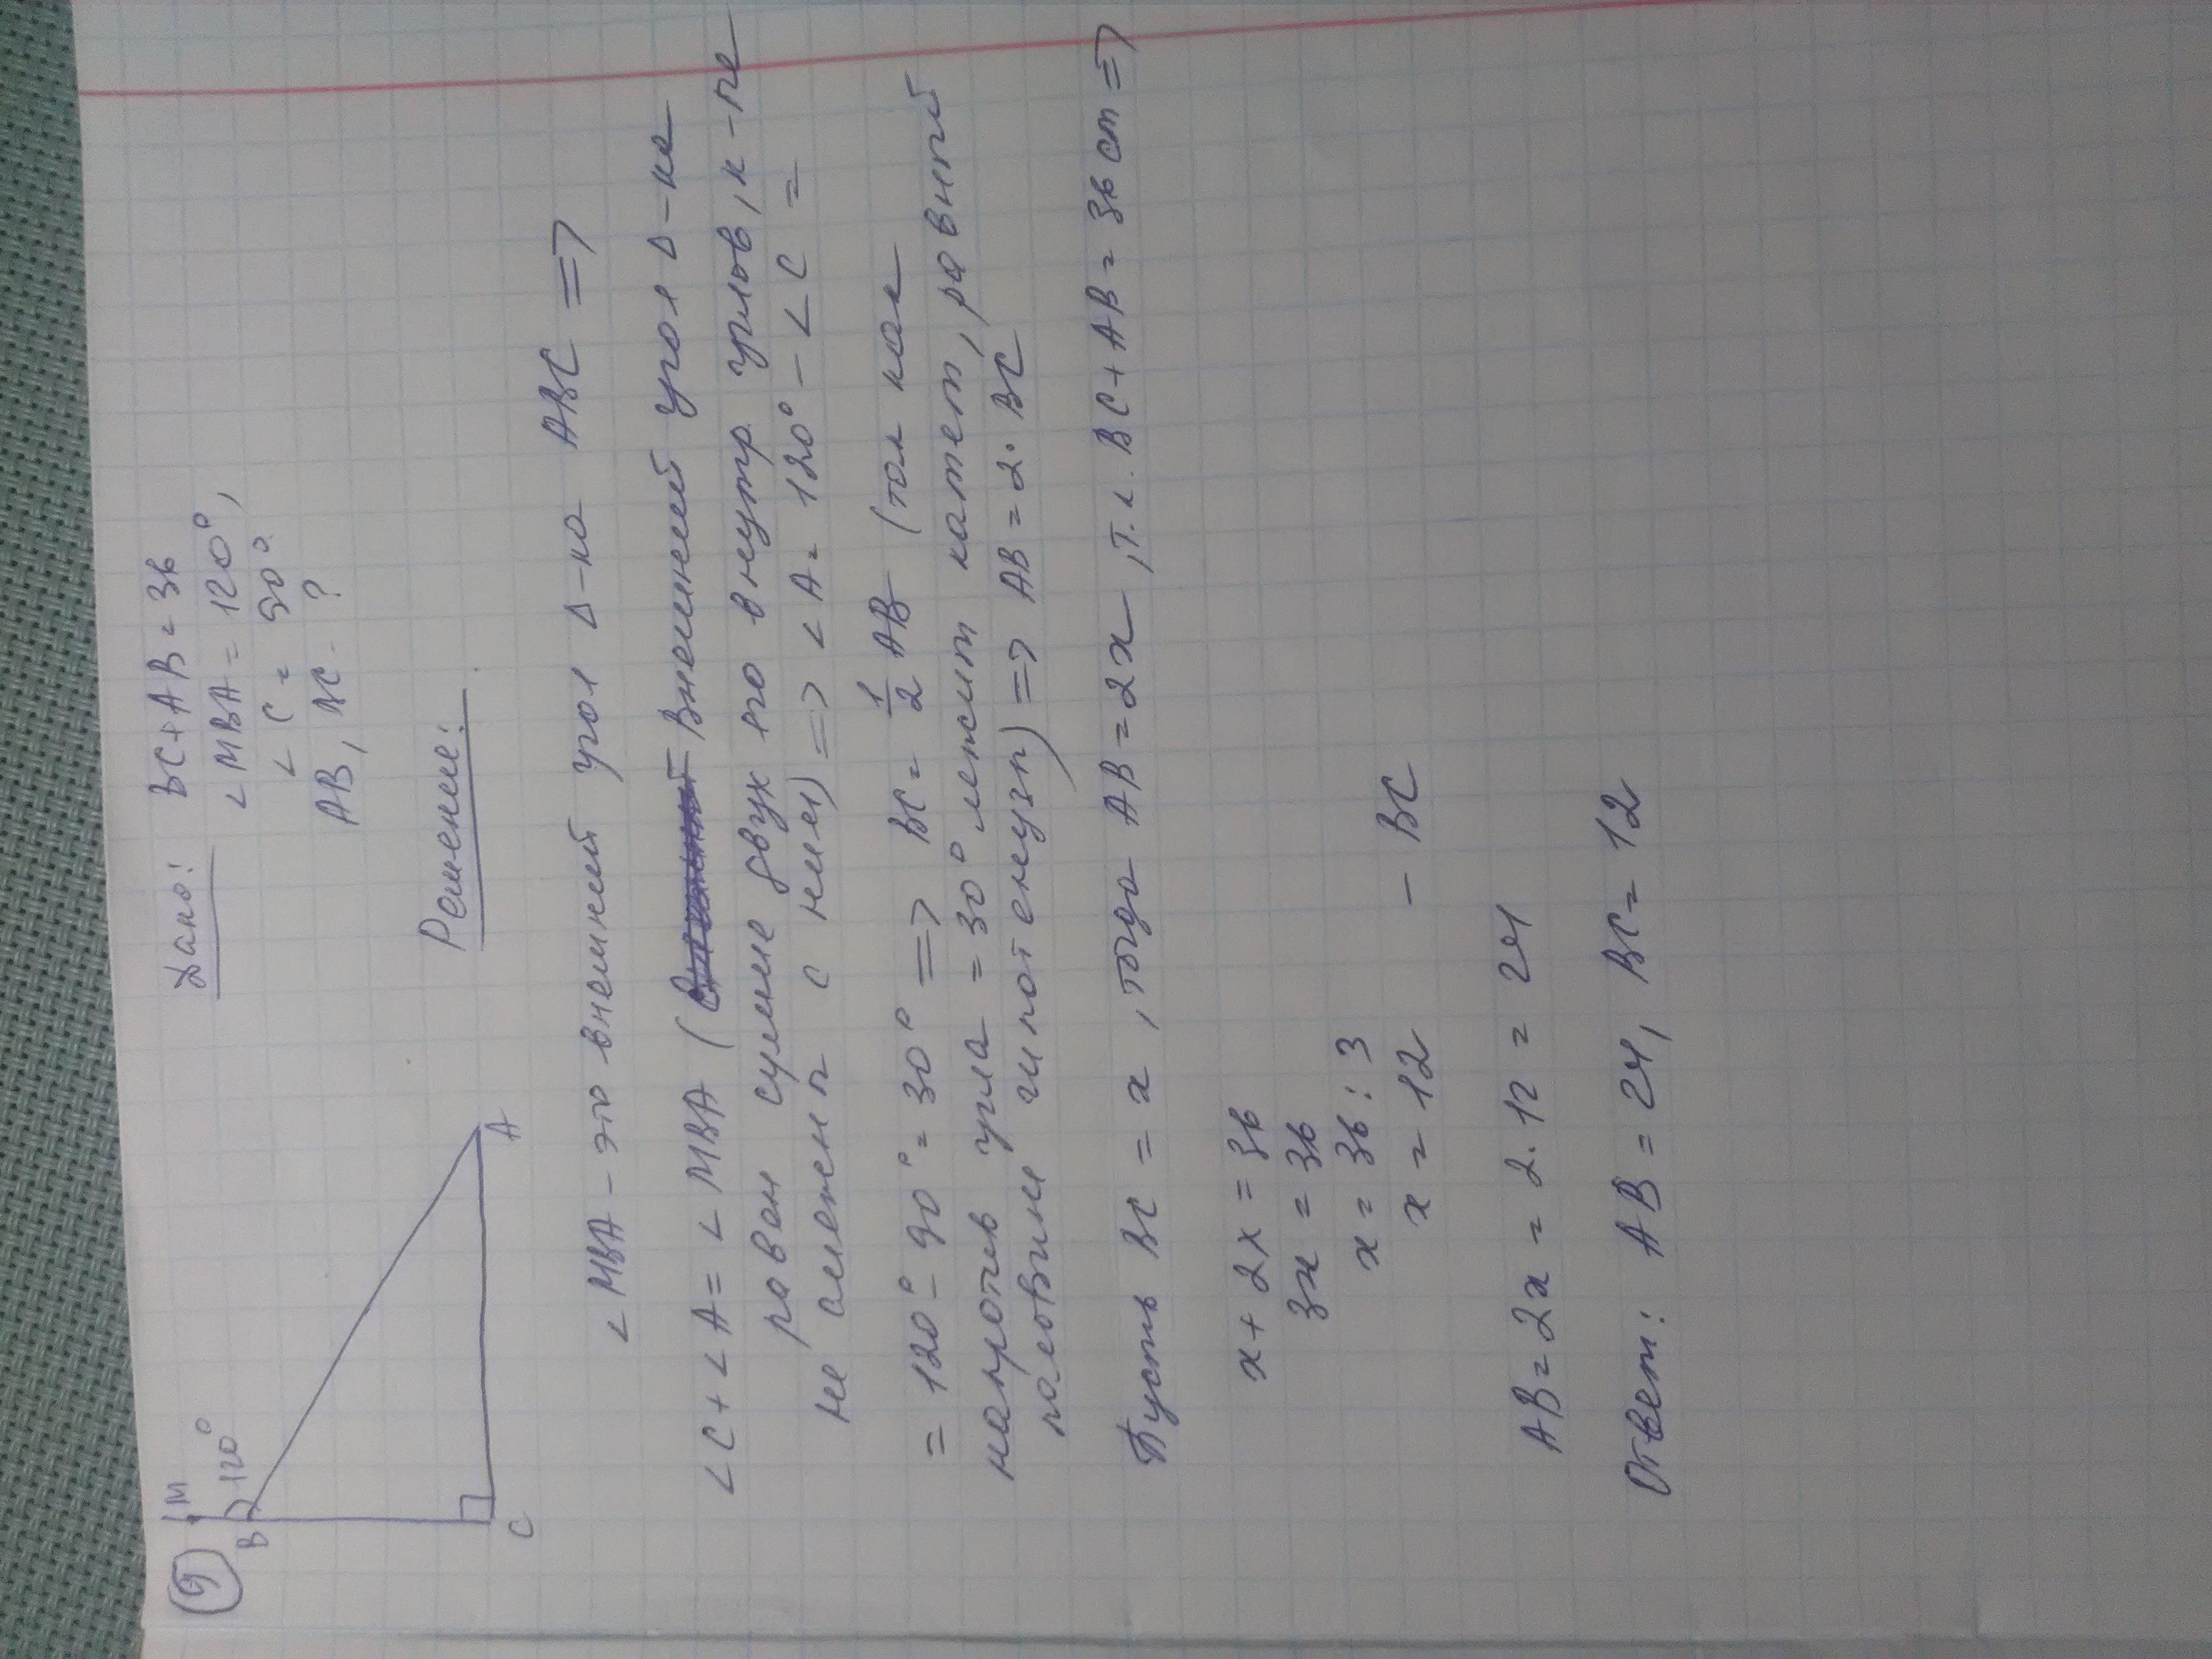 9
M
B
120°
C
A
Дано: BC + AB = 36
∠MBA = 120°,
∠C = 90°
AB, BC - ?
Решение:
∠MBA - это внешний угол Δ-ка ABC =>
∠C + ∠A = ∠MBA ( Внешний угол Δ-ка
равен сумме двух его внутр. углов, к-ые
не смежны с ним) => ∠A = 120° - ∠C =
= 120° - 90° = 30° => BC = 1/2 AB (так как
напротив угла = 30° лежит катет, равный
половине гипотенузы) => AB = 2 · BC
Пусть BC = x, тогда AB = 2x, т.к. BC + AB = 36 cm =>
x + 2x = 36
3x = 36
x = 36 : 3
x = 12 - BC
AB = 2x = 2 · 12 = 24
Ответ: AB = 24, BC = 12